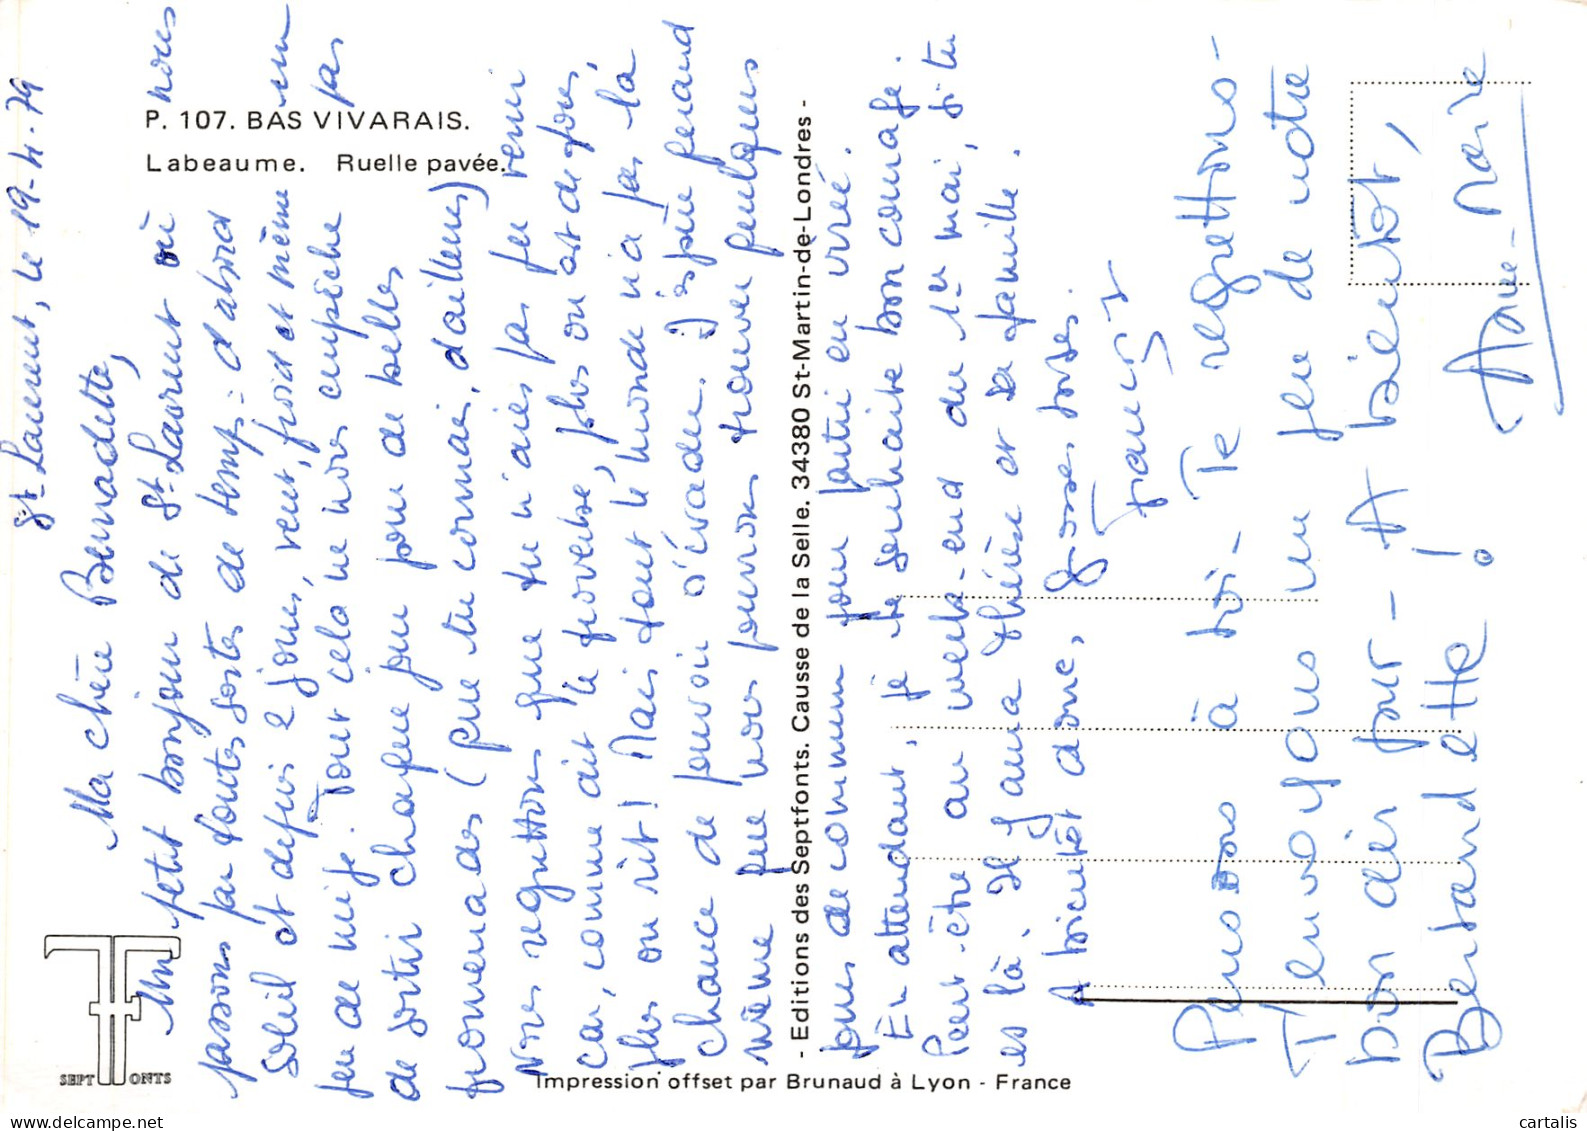 P. 107. BAS VIVARAIS.
Labeaume. Ruelle pavée.
St-Laurent, le 19-4-79
Ma chère Bernadette,
Un petit bonjour de St-Laurent où nous
passons par toutes sortes de temps = d'abord
soleil et depuis 2 jours, vent, froid et même un
peu de neige. Tout cela ne nous empêche pas
de sortir chaque jour pour de belles
promenades (que tu connais, d'ailleurs)
Nous regrettons que tu n'aies pas pu venir
car, comme dit le proverbe, plus on est de fous,
plus on rit ! Mais tout le monde n'a pas la
chance de pouvoir s'évader. J'espère quand
même que nous pourrons trouver quelques
jours de commun pour partir en virée.
En attendant, je te souhaite bon courage.
Peut-être au week-end du 1er mai, si tu
es là. Il y aura Thérèse et sa famille.
A bientôt donc, Grosses bises.
France
Pensons à toi - Te regrettons -
T'envoyons un peu de notre
bon air pur - A bientôt,
Bernadette !
Anne-Marie
- Editions des Septfonts. Causse de la Selle. 34380 St-Martin-de-Londres -
SEPT FONTS
Impression offset par Brunaud à Lyon - France
cartalis